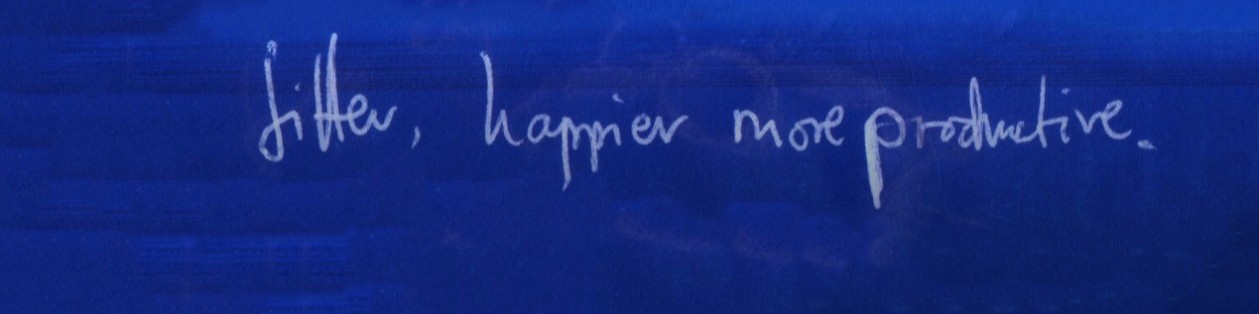 fitter, happier more productive.